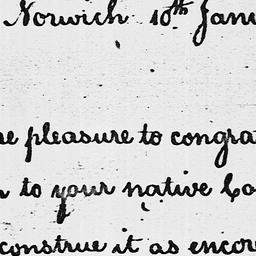 Norwich 10th Janu
e pleasure to congra
to your native Co
construe it as encou